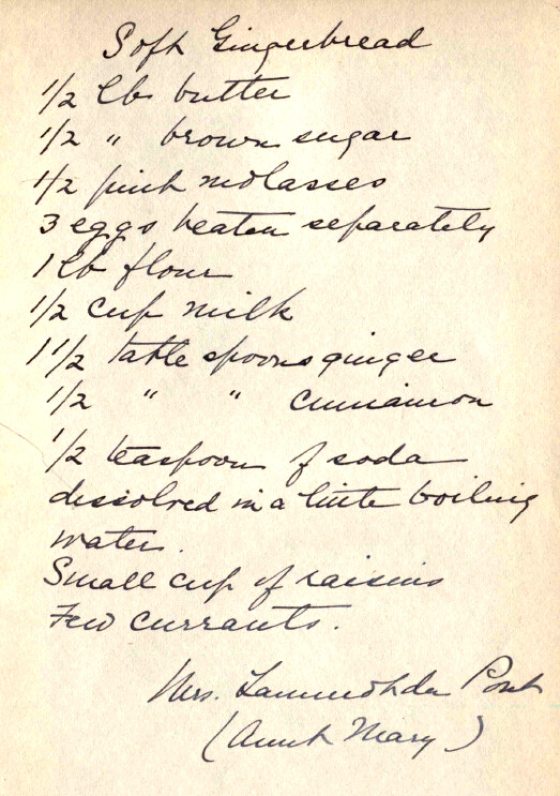 Soft Gingerbread
1/2 lb butter
1/2 " brown sugar
1/2 pint molasses
3 eggs beaten separately
1 lb flour
1/2 cup milk
1 1/2 table spoons ginger
1/2 " " cinnamon
1/2 teaspoon of soda
dissolved in a little boiling
water.
Small cup of raisins
Few currants.
Mrs.
(Aunt Mary)